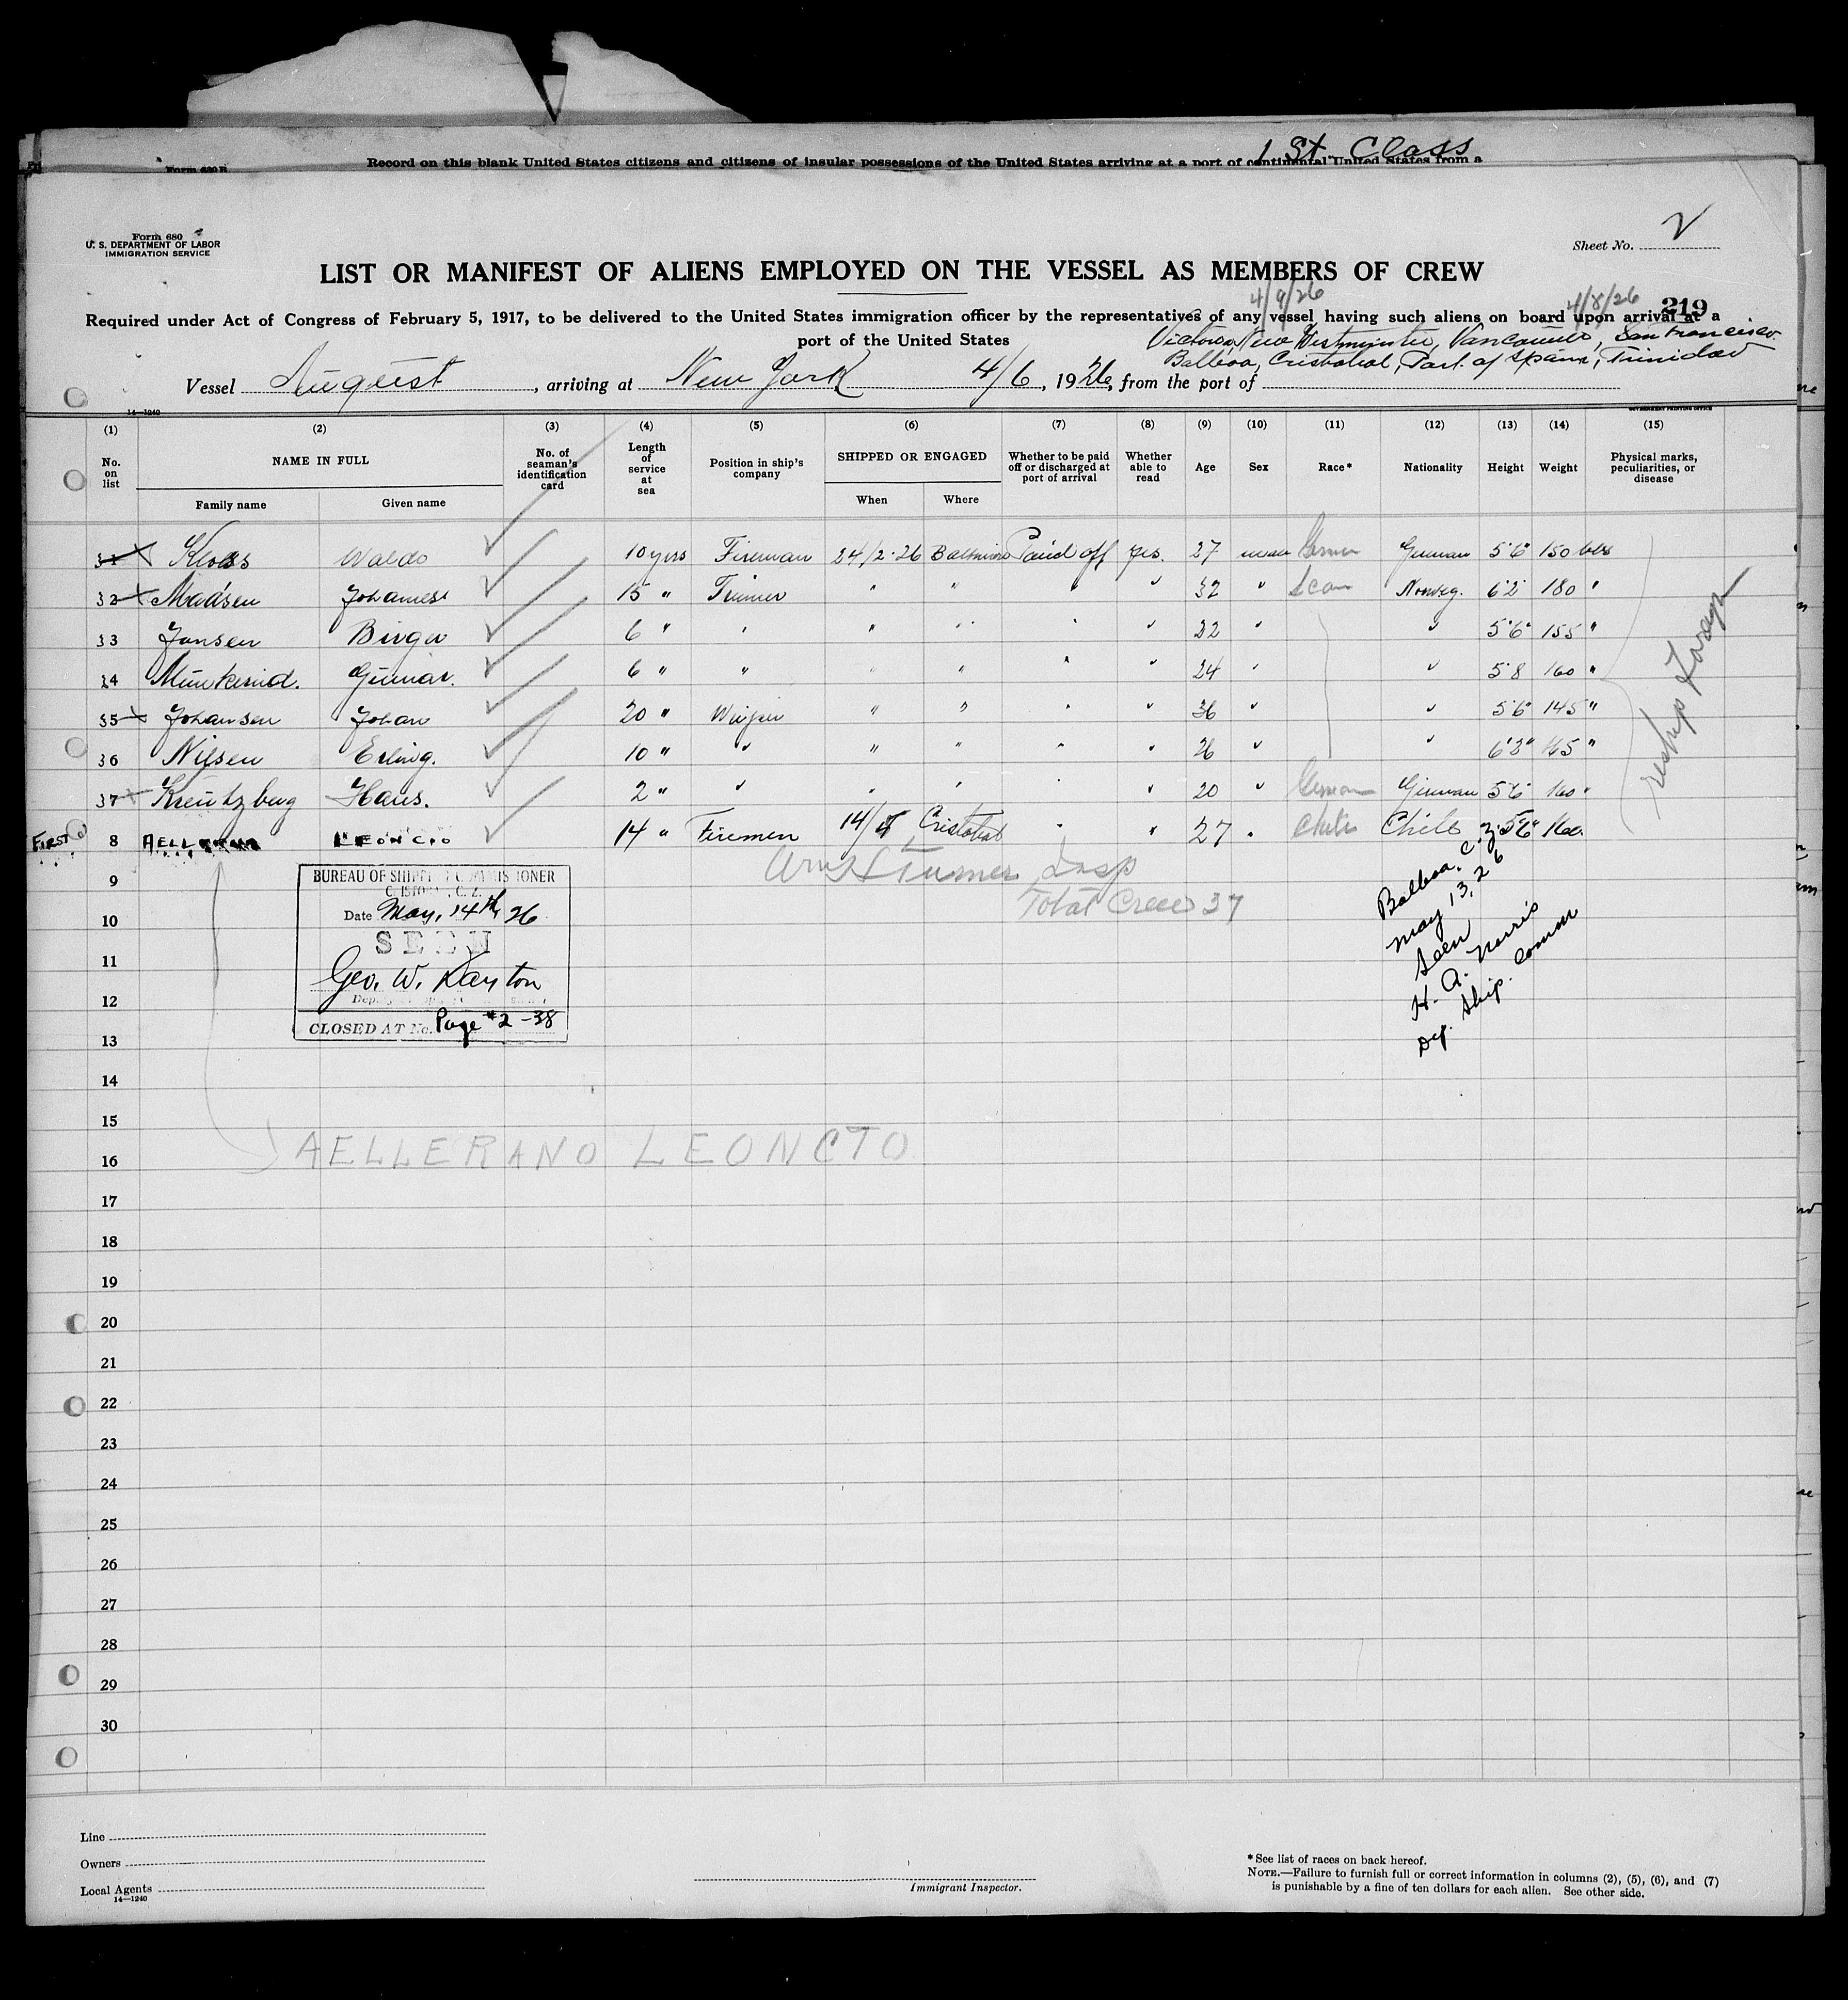 1 St Class
Record on this blank United States citizens and citizens of insular possessions of the United States arriving at a port of continental United States from a
Form 680
U. S. DEPARTMENT OF LABOR
IMMIGRATION SERVICE
Sheet No. 2
LIST OR MANIFEST OF ALIENS EMPLOYED ON THE VESSEL AS MEMBERS OF CREW
4/9/26 4/8/26 219
Required under Act of Congress of February 5, 1917, to be delivered to the United States immigration officer by the representatives of any vessel having such aliens on board upon arrival at a
port of the United States
Victoria, New Westminster, Vancouver, San Francisco.
Balboa, Cristobal, Port of Spain, Trinidad
Vessel August, arriving at New York 4/6, 1926, from the port of
14—1240
GOVERNMENT PRINTING OFFICE
(1) (2) (3) (4) (5) (6) (7) (8) (9) (10) (11) (12) (13) (14) (15)
No. on list NAME IN FULL Family name Given name No. of seaman's identification card Length of service at sea Position in ship's company SHIPPED OR ENGAGED When Where Whether to be paid off or discharged at port of arrival Whether able to read Age Sex Race* Nationality Height Weight Physical marks, peculiarities, or disease
31 Kloss Waldo 10 yrs Fireman 24/2-26 Baltimore Paid off yes. 27 male German German 5'6" 150 lbs
32 Madsen Johannes 15 " Trimer " " " " 32 " Scan Norweg. 6'2 180 "
33 Jansen Birger 6 " " " " " " 22 " " 5'6" 155 "
34 Gunnar. 6 " " " " " " 24 " " 5'8 160 "
35 Johansen Johan 20 " Wiper " " " " 36 " " 5'6" 145 "
36 Nilsen Erling. 10 " " " " " " 26 " " 165 "
37 Kreutzberg Hans. 2 " " " " " " 20 " German German 5'6 160 "
First 8 LEONCIO 14 " Firemen Cristobal " " 27 " Chile Chile 5'6" 160
reship foreign
Insp
Total Crew 37
BUREAU OF SHIPPING COMMISSIONER
CRISTOBAL, C. Z.
Date May, 14th, 26
SEEN
Geo. W. Dayton
CLOSED AT No. Page #2-38
Balboa, C. Z.
May 13, 26
Seen
H. A. Norris
Dep. Ship. Comm
9
10
11
12
13
14
15
16 AELLERANO LEONCIO
17
18
19
20
21
22
23
24
25
26
27
28
29
30
Line
Owners
Local Agents
14—1240
Immigrant Inspector.
*See list of races on back hereof.
NOTE.—Failure to furnish full or correct information in columns (2), (5), (6), and (7)
is punishable by a fine of ten dollars for each alien. See other side.